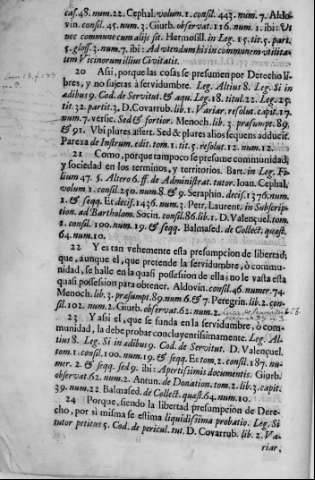 cap. 48. num. 22. Cephal. volum. 1. consil. 443. num. 7. Aldo-
vin. consil. 45. num. 3. Giurb. observat. 116. num. 1. ibi: Ut
nec commune cum alijs sit. Hermosill. in Leg. 15. tit. 5. part.
5. gloss. 3. num. 7. ibi: Ad vtendum his in communem vtilita-
tem Vicinorum illius Civitatis.
20 Assi, porque las cosas se presumen por Derecho li-
bres, y no sujetas à servidumbre. Leg. Altius 8. Leg. Si in
ædibus 9. Cod. de Servitut. & aqu. Leg. 18. titul. 22. Leg. 25.
tit. 32. partit. 3. D. Covarrub. lib. 1. Variar. resolut. capit. 17.
num. 7. versic. Sed & fortior. Menoch. lib. 3. præsumpt. 89.
& 91. Vbi plures asserit. Sed & plures alios sequens adducit.
Pareza de Instrum. edit. tom. 1. tit. 5. resolut. 12. num. 12.
21 Como, porque tampoco se presume communidad,
y sociedad en los terminos, y territorios. Bart. in Leg. Fi-
lium 47. §. Altero 6. ff. de Administrat. tutor. Ioan. Cephal.
volum 1. consil. 250. num. 8. & 9. Seraphin. decis. 1376. num.
1. & seqq. Et decis. 1436. num. 3. Petr. Laurent. in Subscrip-
tion. ad Bartholom. Socin. consil. 86. lib. 1. D. Valençuel. tom.
1. consil. 100. num. 19. & seqq. Balmased. de Collect. quæst.
64. num. 10.
22 Y es tan vehemente esta presumpcion de libertad,
que, aunque el, que pretende la servidumbre, ò commu-
nidad, se halle en la quasi possession de ella; no le vasta esta
quasi possession para obtener. Aldovin. consil. 46. numer. 74.
Menoch. lib. 3. præsumpt. 89. num 6. & 7. Peregrin. lib. 2. con-
sil. 102. num. 2. Giurb. observat. 62. num. 2.
23 Y assi el, que se funda en la servidumbre, ò com-
munidad, la debe probar concluyentissimamente. Leg. Al-
tius 8. Leg. Si in ædibus 9. Cod. de Servitut. D. Valençuel.
tom. 1. consil. 100. num. 19. & seqq. Et tom. 2. consil. 187. nu-
mer. 2. & seqq. sed 9. ibi: Apertissimis documentis. Giurb.
observat. 62. num. 2. Antun. de Donation. tom. 2. lib. 3. capit.
39. num. 22. Balmased. de Collect. quæst. 64. num. 10.
24 Porque, siendo la libertad presumpcion de Dere-
cho, por si misma se estima liquidissima probatio. Leg. Si
tutor petitus 5. Cod. de pericul. tut. D. Covarrub. lib. 2. Va-
riar.